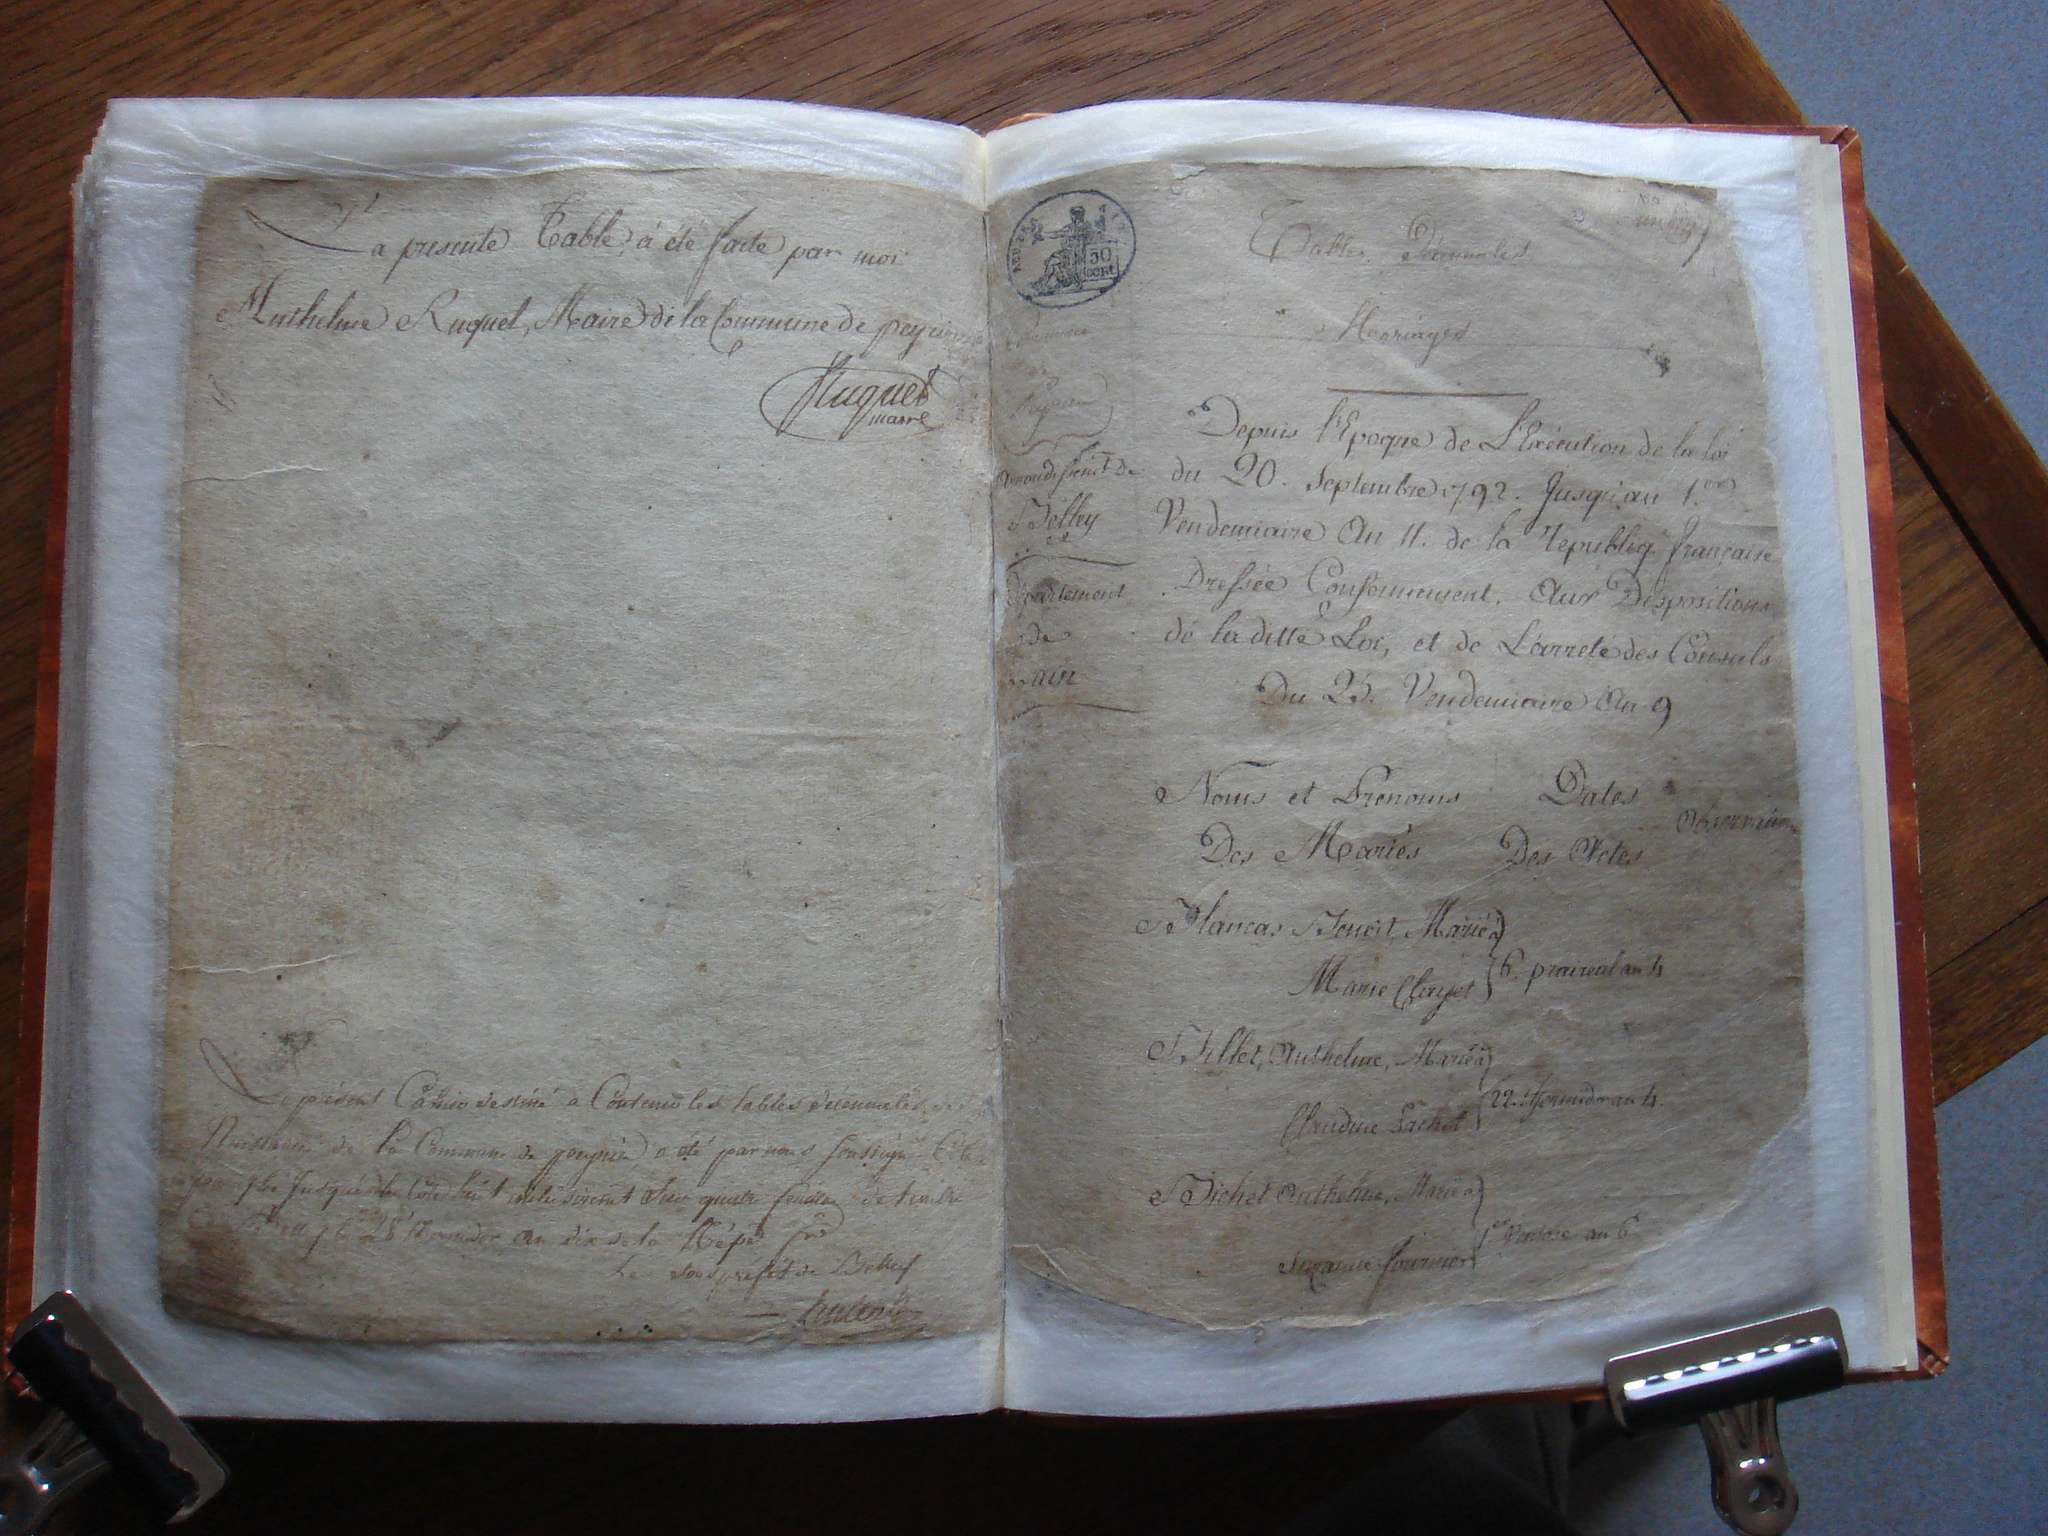 La presente Table, a été faite par moi
Anthelme Ruquet, Maire de la Commune de peyrieu
Ruquet
maire
Le présent Cahier destiné a Contenir les tables décennales de
Naissance de la Commune de peyrieu a été par nous soussigné
quatre feuilles de timbre
28 Thermidor an dix de la Rép. fr.
Le sous préfet de Belley
REP. FRA.
50
CENT
Commune
de
Peyrieu
Arrondissent. De
Belley
Département
de
L'ain
Tables Décennales
Mariages
Depuis l'Epoque de L'Exécution de la loi
du 20. Septembre 1792. Jusqu'au 1.er
Vendemiaire An 11. de la Republiq. française
Dressée Conformement. Aux Dispositions
de la ditte Loi, et de L'arreté des Consuls
Du 25. Vendemiaire An 9
Noms et Prenoms Dates Observations
Des Mariés Des Actes
Blancas Benoit, Marié à
Marie Clayet 6. prairial an 4
Billet, Anthelme, Marié à
Claudine Pachet 22. thermidor an 4.
Bichet Anthelme, Marié à
Suzanne fournier 1er Nivose an 6